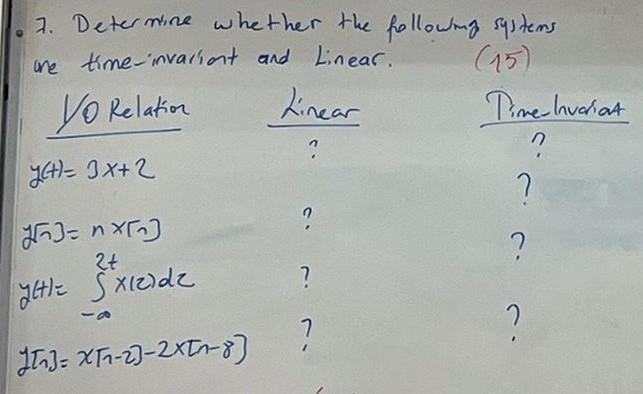 7. Determine whether the following systems
are time-invariant and Linear. (15)
I/O Relation Linear Time-Invariant
? ?
y(t)= 3x+2
?
y[n]= n x[n] ?
?
y(t)= ∫_{-∞}^{2t} x(z)dz ?
? ?
y[n]= x[n-2]-2x[n-8]